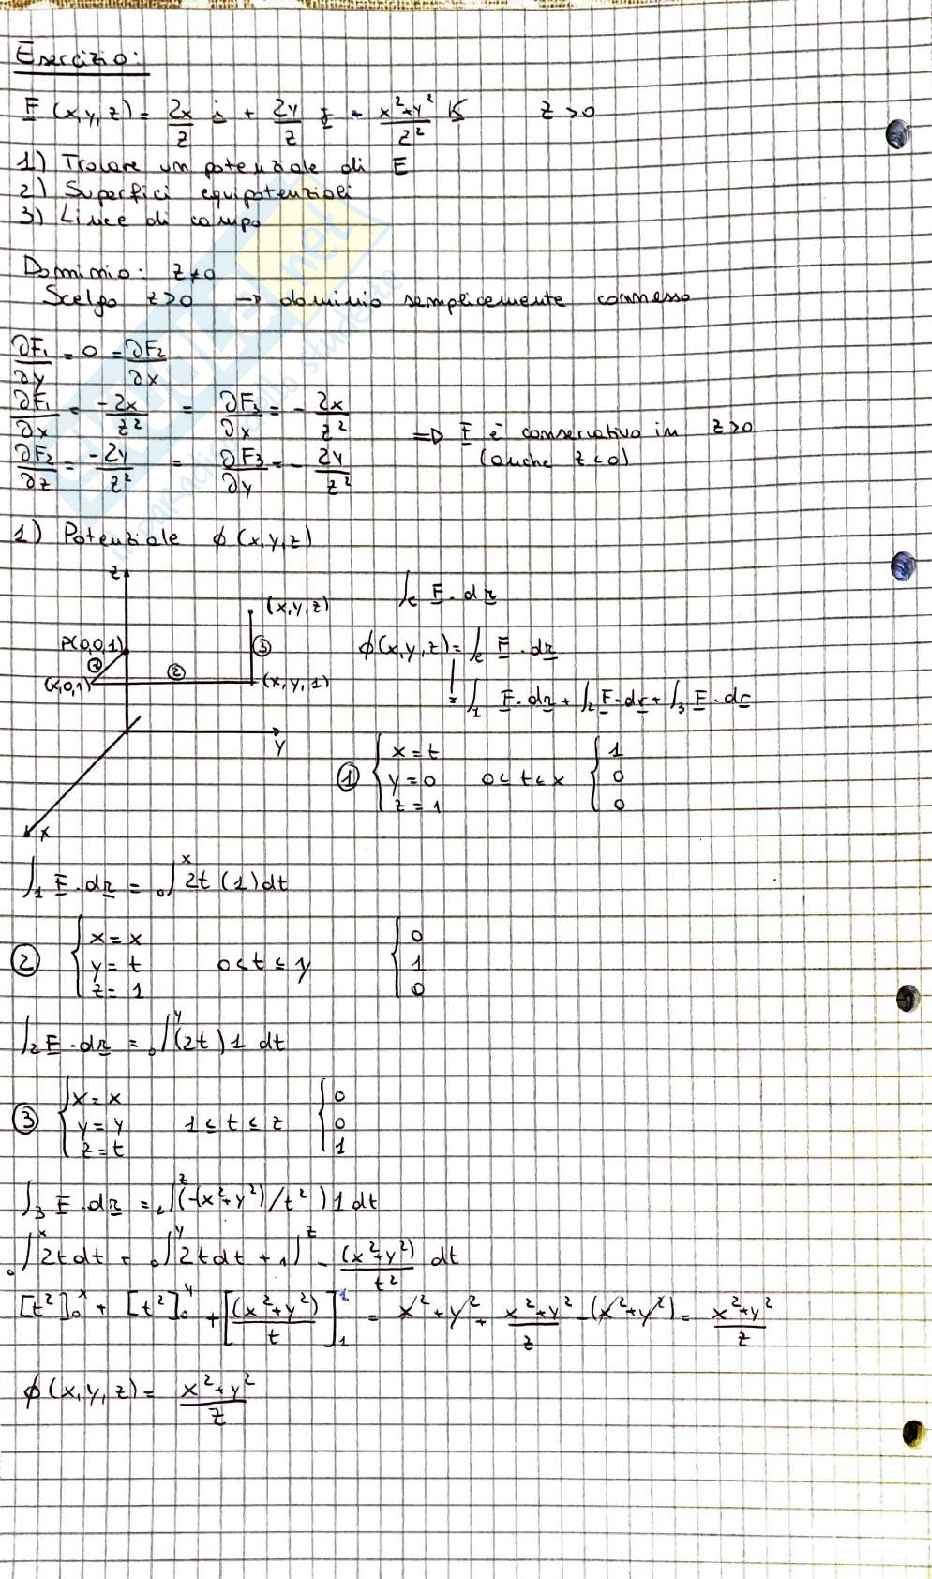 Esercizio:
F (x,y,z) = 2x/z i + 2y/z j - x²+y²/z² K z>0
1) Trovare un potenziale di F
2) Superfici equipotenziali
3) Linee di campo
Dominio: z≠0
Scelgo z>0 → dominio semplicemente connesso
∂F₁/∂y = 0 = ∂F₂/∂x
∂F₁/∂x = -2x/z² = ∂F₃/∂x = - 2x/z²
⇒ F è conservativo in z>0
∂F₂/∂z = -2y/z² = ∂F₃/∂y = - 2y/z²
(anche z<0)
1) Potenziale ϕ(x,y,z)
z
∫c F · dr
(x,y,z)
P(0,0,1)
③
ϕ(x,y,z) = ∫c F · dr
① ②
(x,0,1) (x,y,1)
= ∫₁ F·dr + ∫₂ F·dr + ∫₃ F·dr
y
① { x=t
y=0 0≤t≤x
z=1
{ 1
0
0
x
∫₁ F·dr = ₀∫ˣ 2t (1)dt
② { x=x
y=t 0≤t≤y
z=1
{ 0
1
0
∫₂ F·dr = ₀∫ʸ (2t)1 dt
③ { x=x
y=y 1≤t≤z
z=t
{ 0
0
1
∫₃ F·dr = ₁∫ᶻ (-(x²+y²)/t²) 1 dt
₀∫ˣ 2t dt + ₀∫ʸ 2t dt + ₁∫ᶻ - (x²+y²)/t² dt
[t²]₀ˣ + [t²]₀ʸ + [(x²+y²)/t]₁ = x²+y² + x²+y²/z - (x²+y²) = x²+y²/z
ϕ(x,y,z) = x²+y²/z